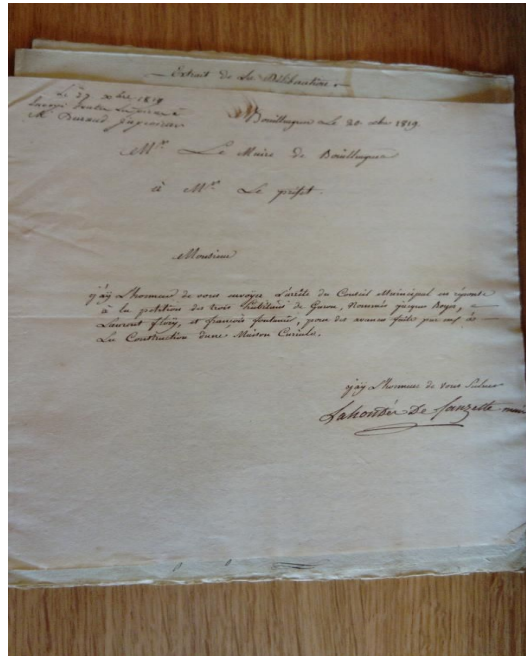 Extrait de la Délibération
Le 27 xbre 1819
M. Durand
Bouillargues le 20 xbre 1819
Mr. Le Maire de Bouillargues
à Mr. Le préfet
Monsieur
j'aÿ L'honneur de vous envoyer L'arrêté du Conseil Municipal en réponse
à la petition des trois habitans de Garon, Nommés jacques Boyer,
Laurent floriy, et françois fontanés, pour des avances faites par eux à
La Construction dune Maison Curiale.
j'aÿ L'honneur de vous saluer
Lahondès De Lauzette maire